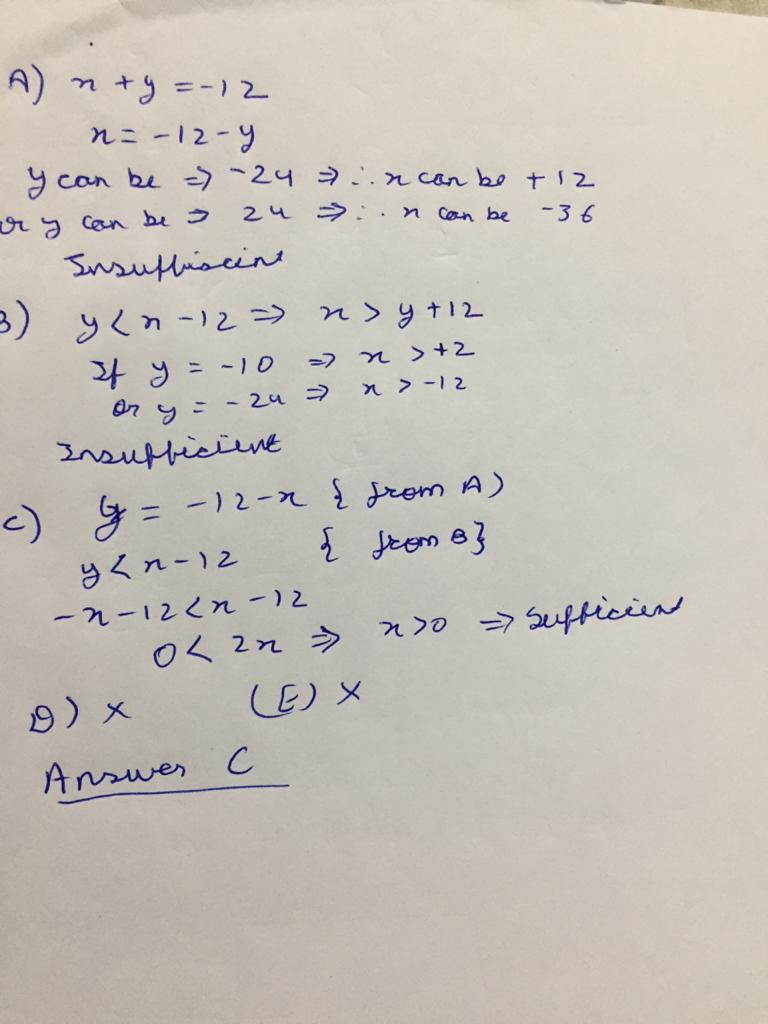 A) x + y = -12
x = -12 - y
y can be => -24 => ∴ x can be +12
or y can be => 24 => ∴ x can be -36
Insufficient
B) y < x - 12 => x > y + 12
If y = -10 => x > +2
or y = -24 => x > -12
Insufficient
C) y = -12 - x { from A)
y < x - 12 { from B}
-x - 12 < x - 12
0 < 2x => x > 0 => Sufficient
D) × (E) ×
Answer C